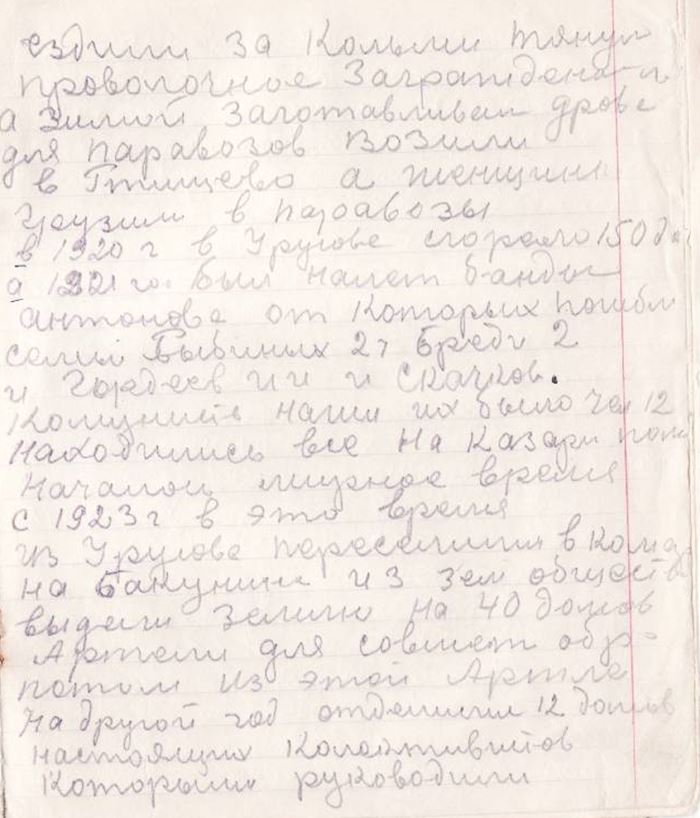 ездили за Колыми тянули
проволочное Заграждени
а зимой Заготавливали дрова
для паравозов Возили
в Ртищево а женщины
грузили в паравозы
в 1920 г в Урусове сгорело 150 до
а 1921 го был налет банды
антонова от Которых погибли
семьи 27 2
и Гордеев и и Скачков.
Комунисты наши их было чел 12
находились все на
началось мирное время
с 1923 г в это время
из Урусова переселили в
на Бакунина из зем обществ
выдели землю на 40 домов
Артели для совмест обр-
потом из этой Артле
на другой год отделили 12 домов
настоящих Колективистов
Которыми руководили